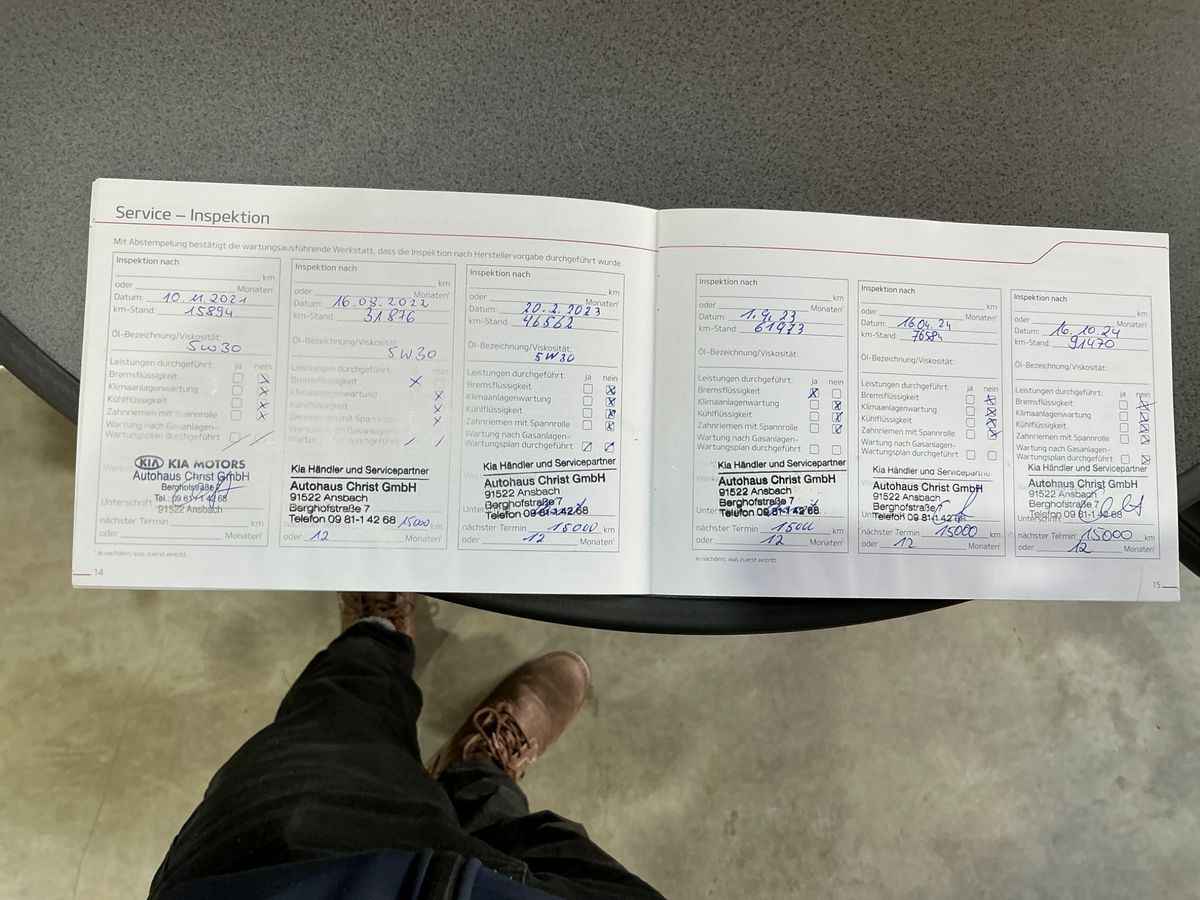 Service – Inspektion
Mit Abstempelung bestätigt die wartungsausführende Werkstatt, dass die Inspektion nach Herstellervorgabe durchgeführt wurde.
Inspektion nach
km
oder Monaten¹
Datum: 10.11.2021
km-Stand: 15894
Öl-Bezeichnung/Viskosität:
5W30
Leistungen durchgeführt: ja nein
Bremsflüssigkeit x
Klimaanlagenwartung x
Kühlflüssigkeit x
Zahnriemen mit Spannrolle x
Wartung nach Gasanlagen-
Wartungsplan durchgeführt / /
KIA KIA MOTORS
Autohaus Christ GmbH
Berghofstraße 7
Unterschrift Tel. 09 81/1 42 68
91522 Ansbach
nächster Termin km
oder Monaten¹
¹ je nachdem, was zuerst eintritt.
14
Inspektion nach
km
oder Monaten¹
Datum: 16.03.2022
km-Stand: 31876
Öl-Bezeichnung/Viskosität:
5W30
Leistungen durchgeführt:
Bremsflüssigkeit x
Klimaanlagenwartung x
Kühlflüssigkeit x
Zahnriemen mit Spannrolle x
Wartung nach Gasanlagen-
Wartungsplan durchgeführt / /
Kia Händler und Servicepartner
Autohaus Christ GmbH
91522 Ansbach
Berghofstraße 7
Telefon 09 81-1 42 68 15000 km
oder 12 Monaten¹
Inspektion nach
km
oder Monaten¹
Datum: 20.2.2023
km-Stand: 46562
Öl-Bezeichnung/Viskosität:
5W30
Leistungen durchgeführt: ja nein
Bremsflüssigkeit x
Klimaanlagenwartung x
Kühlflüssigkeit x
Zahnriemen mit Spannrolle x
Wartung nach Gasanlagen-
Wartungsplan durchgeführt / /
Kia Händler und Servicepartner
Autohaus Christ GmbH
91522 Ansbach
Berghofstraße 7
Telefon 09 81-1 42 68
nächster Termin 15000 km
oder 12 Monaten¹
Inspektion nach
km
oder Monaten¹
Datum: 1.9.23
km-Stand: 61973
Öl-Bezeichnung/Viskosität:
Leistungen durchgeführt: ja nein
Bremsflüssigkeit x
Klimaanlagenwartung x
Kühlflüssigkeit x
Zahnriemen mit Spannrolle x
Wartung nach Gasanlagen-
Wartungsplan durchgeführt
Kia Händler und Servicepartner
Autohaus Christ GmbH
91522 Ansbach
Berghofstraße 7
Telefon 09 81-1 42 68
nächster Termin 15000 km
oder 12 Monaten¹
¹ je nachdem, was zuerst eintritt.
Inspektion nach
km
oder Monaten¹
Datum: 16.04.24
km-Stand: 76584
Öl-Bezeichnung/Viskosität:
Leistungen durchgeführt: ja nein
Bremsflüssigkeit x
Klimaanlagenwartung x
Kühlflüssigkeit x
Zahnriemen mit Spannrolle x
Wartung nach Gasanlagen-
Wartungsplan durchgeführt
Kia Händler und Servicepartner
Autohaus Christ GmbH
91522 Ansbach
Berghofstraße 7
Telefon 09 81-1 42 68
nächster Termin 15000 km
oder 12 Monaten¹
Inspektion nach
km
oder Monaten¹
Datum: 16.10.24
km-Stand: 91470
Öl-Bezeichnung/Viskosität:
Leistungen durchgeführt: ja nein
Bremsflüssigkeit x
Klimaanlagenwartung x
Kühlflüssigkeit x
Zahnriemen mit Spannrolle x
Wartung nach Gasanlagen-
Wartungsplan durchgeführt x
Kia Händler und Servicepartner
Autohaus Christ GmbH
91522 Ansbach
Berghofstraße 7
Telefon 09 81-1 42 68
nächster Termin 15000 km
oder 12 Monaten¹
15